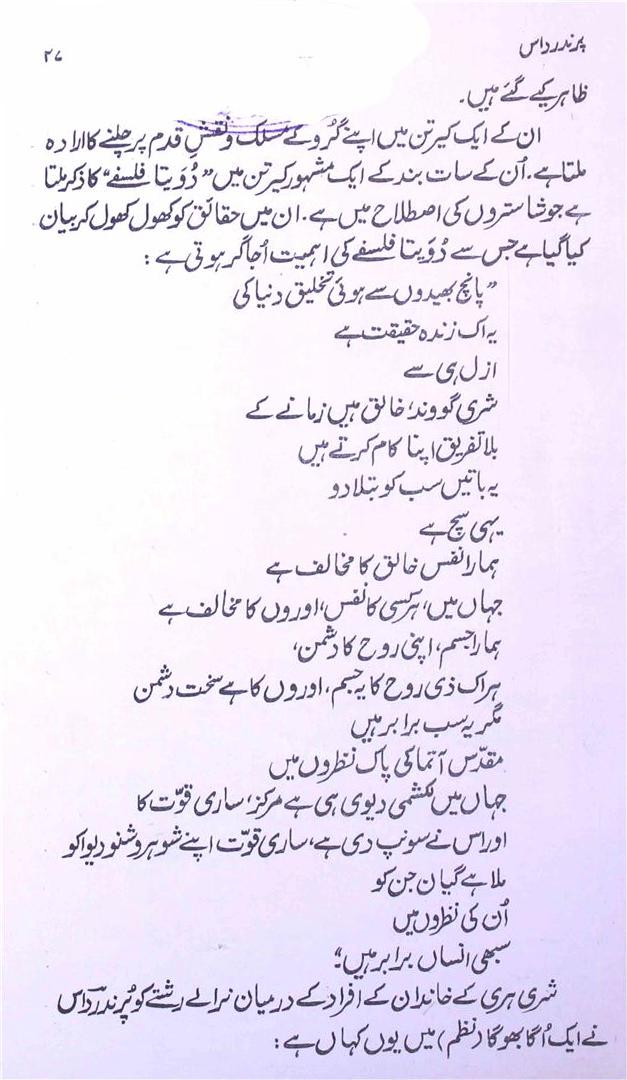 پرندرداس ۲۷
ظاہر کیے گئے ہیں۔
ان کے ایک کیرتن میں اپنے گُرو کے مسلک و نقشِ قدم پر چلنے کا ارادہ
ملتا ہے۔ اُن کے سات بند کے ایک مشہور کیرتن میں ”دُوَیتا فلسفے“ کا ذکر ملتا
ہے جو شاستروں کی اصطلاح میں ہے۔ ان میں حقائق کو کھول کھول کر بیان
کیا گیا ہے جس سے دُوَیتا فلسفے کی اہمیت اُجاگر ہوتی ہے :
”پانچ بھیدوں سے ہوئی تخلیق دنیا کی
یہ اک زندہ حقیقت ہے
ازل ہی سے
شری گووند، خالق ہیں زمانے کے
بلا تفریق اپنا کام کرتے ہیں
یہ باتیں سب کو بتلا دو
یہی سچ ہے
ہمارا نفس خالق کا مخالف ہے
جہاں میں، ہر کسی کا نفس، اوروں کا مخالف ہے
ہمارا جسم، اپنی روح کا دشمن،
ہر اک ذی روح کا یہ جسم، اوروں کا ہے سخت دشمن
مگر یہ سب برابر ہیں
مقدّس آتما کی پاک نظروں میں
جہاں میں لکشمی دیوی ہی ہے مرکز، ساری قوّت کا
اور اس نے سونپ دی ہے، ساری قوّت اپنے شوہر وشنو دیوا کو
ملا ہے گیان جن کو
اُن کی نظروں میں
سبھی انساں برابر ہیں“؛
شری ہری کے خاندان کے افراد کے درمیان نرالے رشتے کو پُرندرداس
نے ایک اُگا بھوگا (نظم) میں یوں کہا ں ہے :